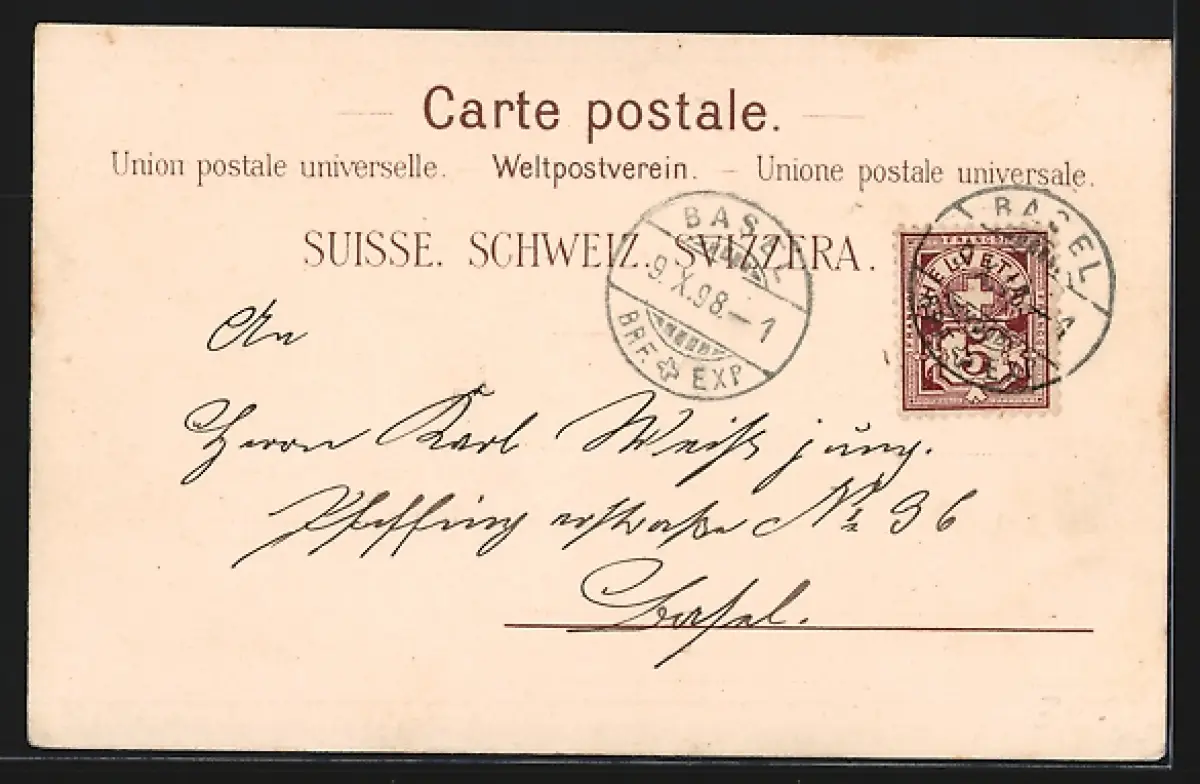 Carte postale.
Union postale universelle. Weltpostverein. – Unione postale universale.
SUISSE. SCHWEIZ. SVIZZERA.
BASEL
9.X.98.–1
BRF. EXP
BASEL
FRANCO
HELVETIA
5
An
Herrn Karl Weiß jung.
Pfeffingerstraße № 36
Basel.